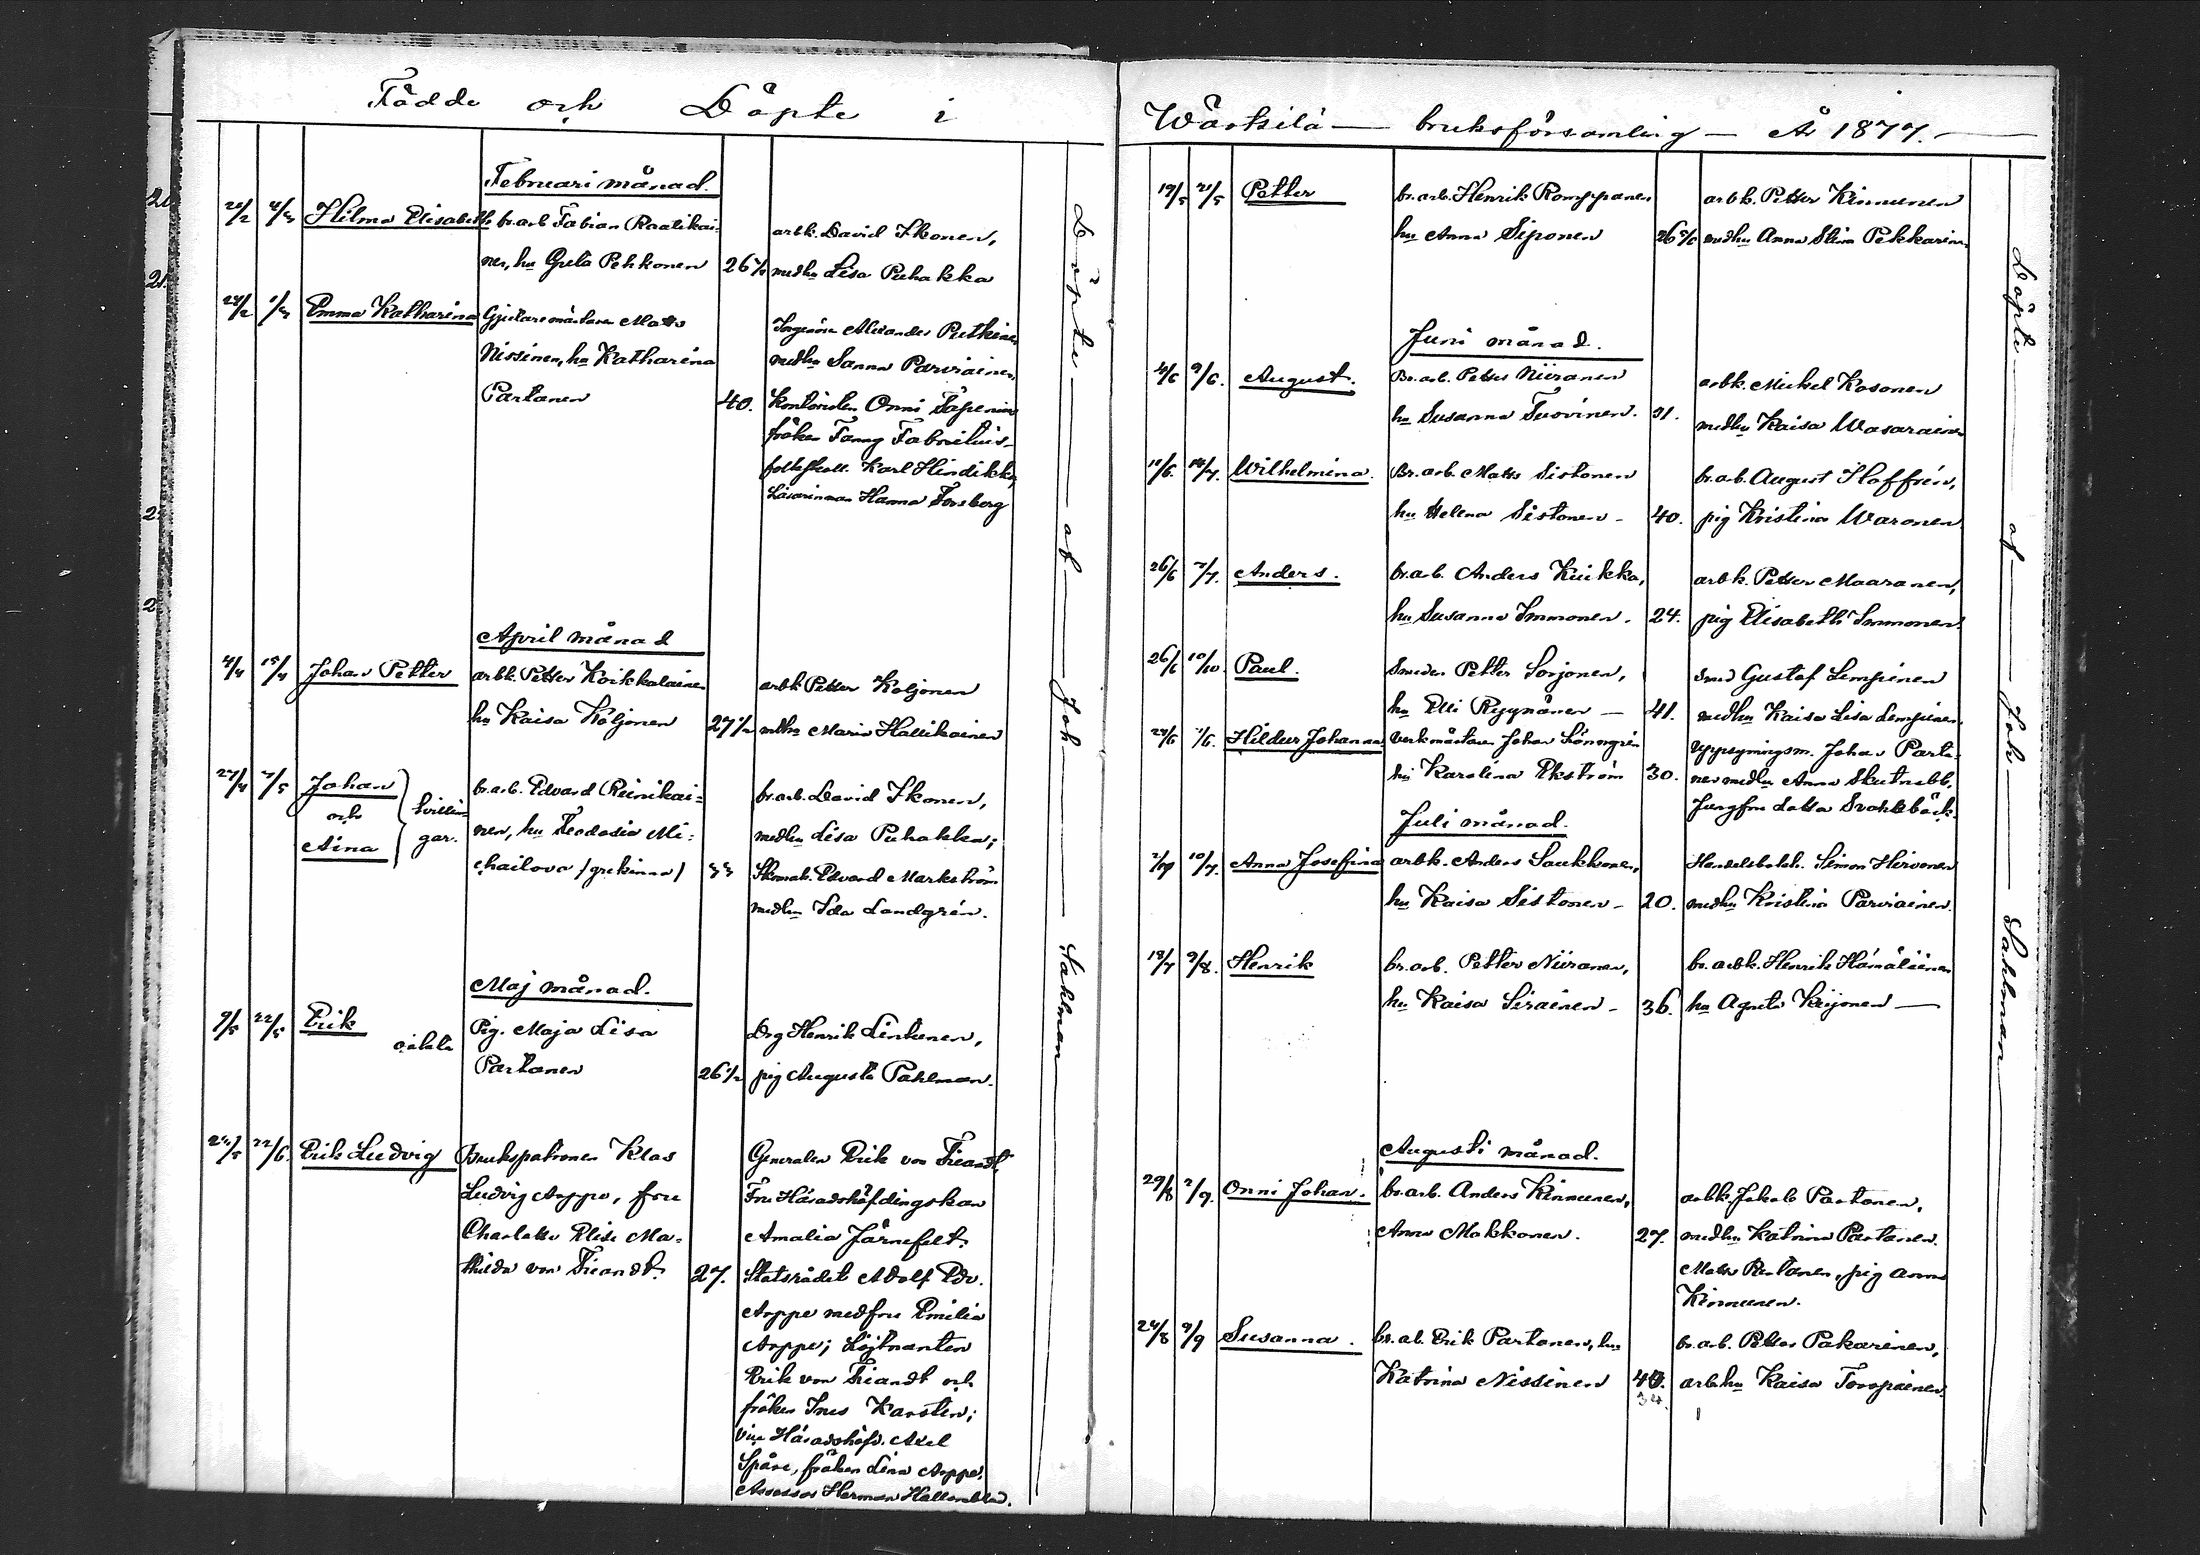 Födde och Döpte i
Februari månad.
Hilma Elisabeth br.arb Fabian Raatikai-
arbk. David Ikonen,
nen, hu Greta Pehkonen 26 medhu Lisa Puhakka
Emma Katharina Gjutaremästaren Matts
Ingeniör Alexander Putkinen
Nissinen, hu Katharina medhu Sanna Parviainen,
Partanen 40. Kontoristen Onni
fröken Fanny Fabritius
Karl Hindikka,
Hanna Forsberg
April månad
4/4 15/4 Johan Petter arbk. Petter Koikkalainen arbk Petter Koljonen
hu Kaisa Koljonen 27 1/2 mdhu Maria Hallikainen
27/4 7/5 Johan och Aina tvillingar. br.arb. Edvard Reinikai=
br.arb. David Ikonen,
nen, hu Feodosia Mi=
medhu Lisa Puhakka;
chailova /grekinna/ 33 Skomak. Edvard Markström
medhu Ida Landgrén.
Maj månad.
9/5 22/5 Erik oäkta Pig. Maja Lisa
Drg Henrik Linkunen,
Partanen 26 1/2 pig Augusta Pahlman.
22/6. Erik Ludvig Brukspatronen Klas
Generalen Erik von Fieandt,
Ludvig Arppe, fru Fru Häradshöfdingskan
Charlotta Elise Ma= Amalia Järnefelt.
thilda von Fieandt. 27. Statsrådet Adolf Edv.
Arppe med fru Emilia
Arppe; Löjtnanten
Erik von Fieandt och
fröken Ines Karstén;
vice Häradshöfd. Axel
Spåre, fröken Lina Arppe,
Assessor Herman Hallonblad.
Döpte af Joh Sahlman
Wärtsilä bruksförsamling År 1877.
19/5 21/5 Petter br.arb. Henrik Romppanen arbk. Petter Kinnunen
hu Anna Siponen 26 medhu Anna Stina Pekkarinen
Juni månad.
4/6 9/6. August. Br.arb. Petter Niiranen arbk. Mickel Kosonen
hu Susanna Tuovinen. 31. medhu Kaisa Wasarainen
Wilhelmina. Br.arb. Matts Sistonen br.arb. August Hoffrén,
hu Helena Sistonen - 40. pig Kristina Waronen.
26/6 7/7. Anders. br.arb. Anders Kuikka, arbk. Petter Maaranen,
hu Susanna Immonen. 24. pig Elisabeth Immonen.
26/6 10/10 Paul. Smeden Petter Sorjonen, Smed Gustaf Lempinen
hu Elli Ryynänen 41. medhu Kaisa Lisa Lempinen.
Hildur Johanna. Verkmästaren Johan Lönngrén Uppsyningsm. Johan Parta-
hu Karolina Ekström 30. nen medhu Anna Skutnabb,
Jungfru Lotta Svahlbäck.
Juli månad.
10/7. Anna Josefina arbk. Anders Saukkonen, Handelsbetch. Simon Hirvonen
hu Kaisa Sistonen - 20. medhu Kristina Parviainen.
18/7 9/8. Henrik br.arb. Petter Niiranen, br.arbk. Henrik Hämäläinen
hu Kaisa Sirainen - 36. hu Agneta Keijonen
Augusti månad.
29/8 2/9. Onni Johan. br.arb. Anders Kinnunen, arbk. Jakob Partanen,
Anna Makkonen. 27. medhu Katrina Partanen.
Matts Partanen, pig Anna
Kinnunen.
9/9 Susanna. br.arb. Erik Partanen, hu br.arb. Petter Pakarinen,
Katrina Nissinen 40. arb.hu Kaisa Toropainen.
34.
Döpte af Joh Sahlman